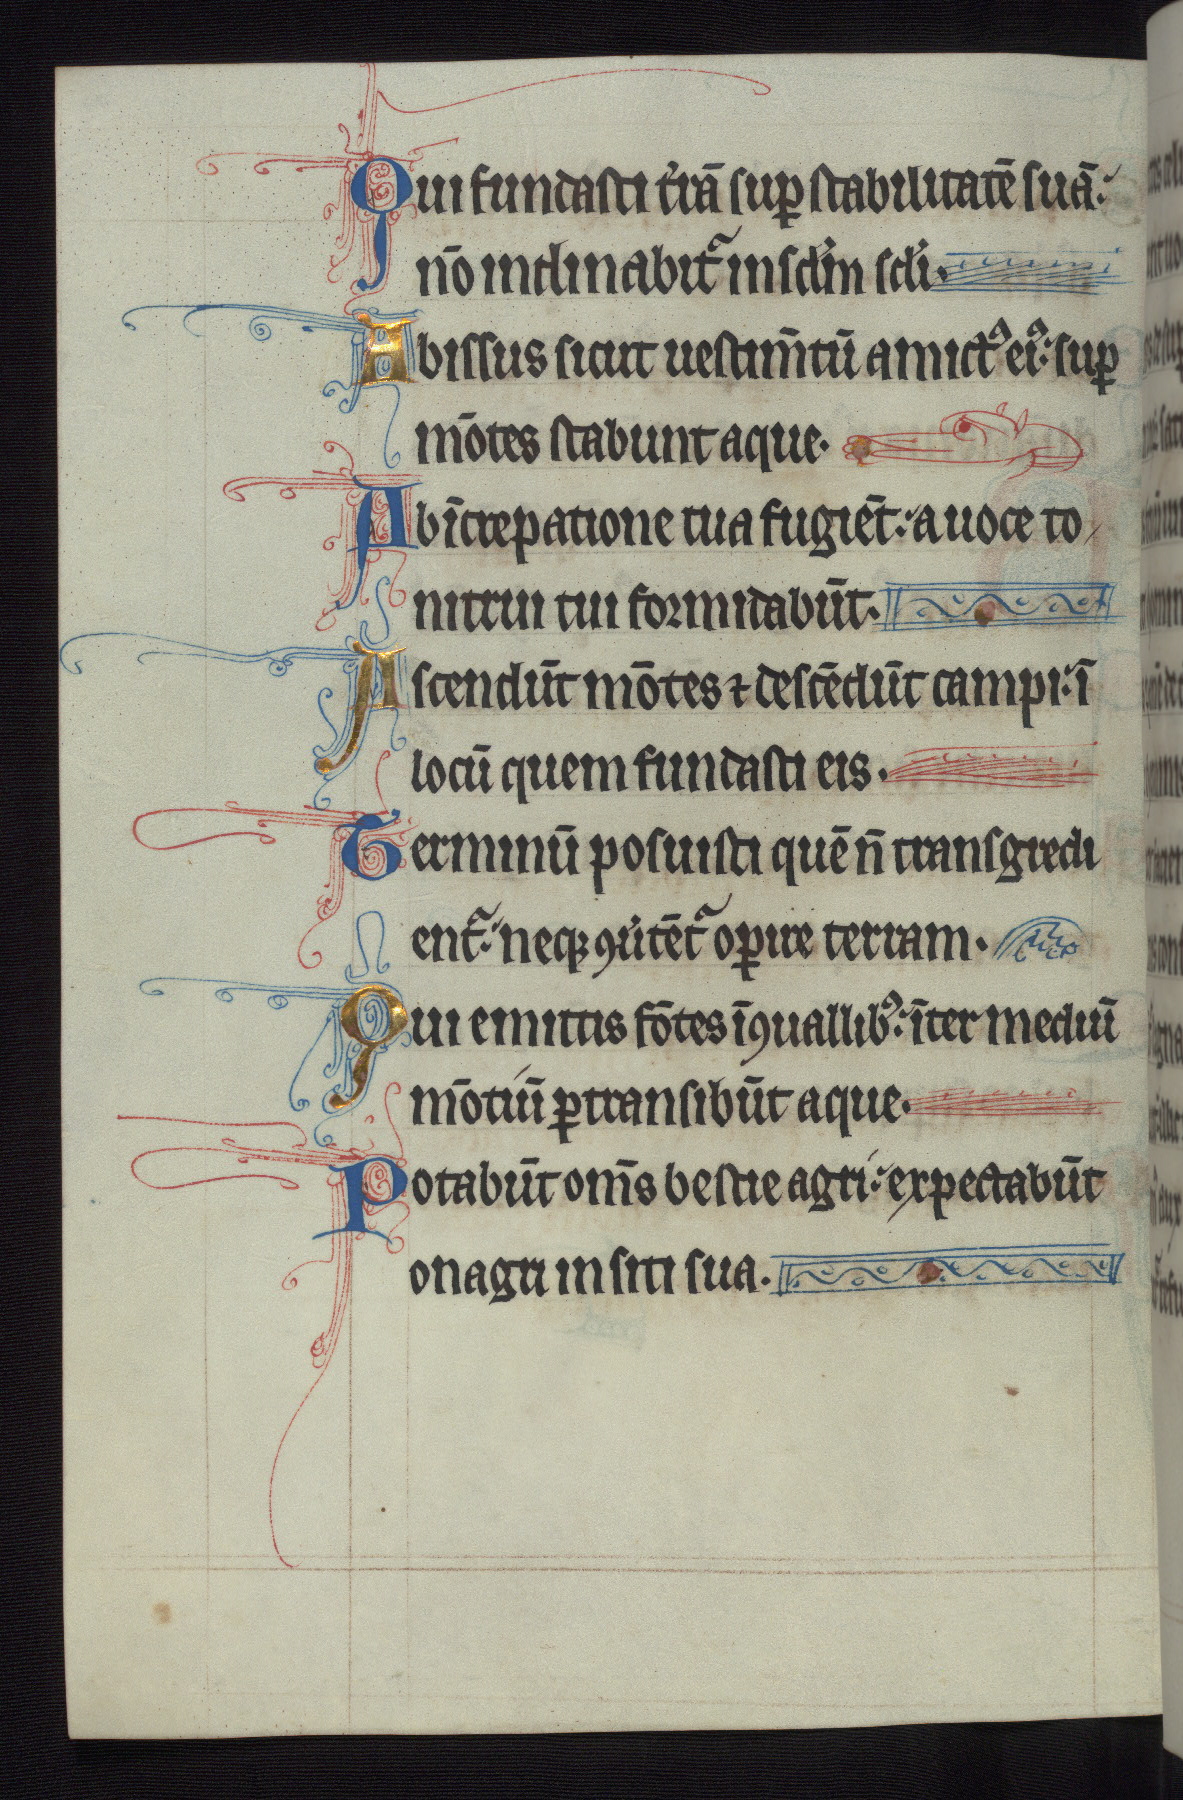 Qui fundasti t̾rā sup̱ stabilitatē suā:
nō inclinabit᷑ in sc̄lm scl̾i.
Abissus sicut uestim̄tū amictꝰ eiꝰ: sup̱
mōtes stabunt aque.
Ab īcrepatione tua fugiēt: a uoce to
nitrui tui formidabūt.
Ascendūt mōtes ⁊ descēdūt campi: ī
locū quem fundasti eis.
Terminū posuisti quē n̄ transgredi
ent᷑: neqꝫ ꝯu̾tēt᷑ oꝑire terram.
Qui emittis fōtes ī ꝯuallibꝰ: īter mediū
mōtiū ꝑtransibūt aque.
Potabūt om̄s bestie agri: expectabūt
onagri in siti sua.